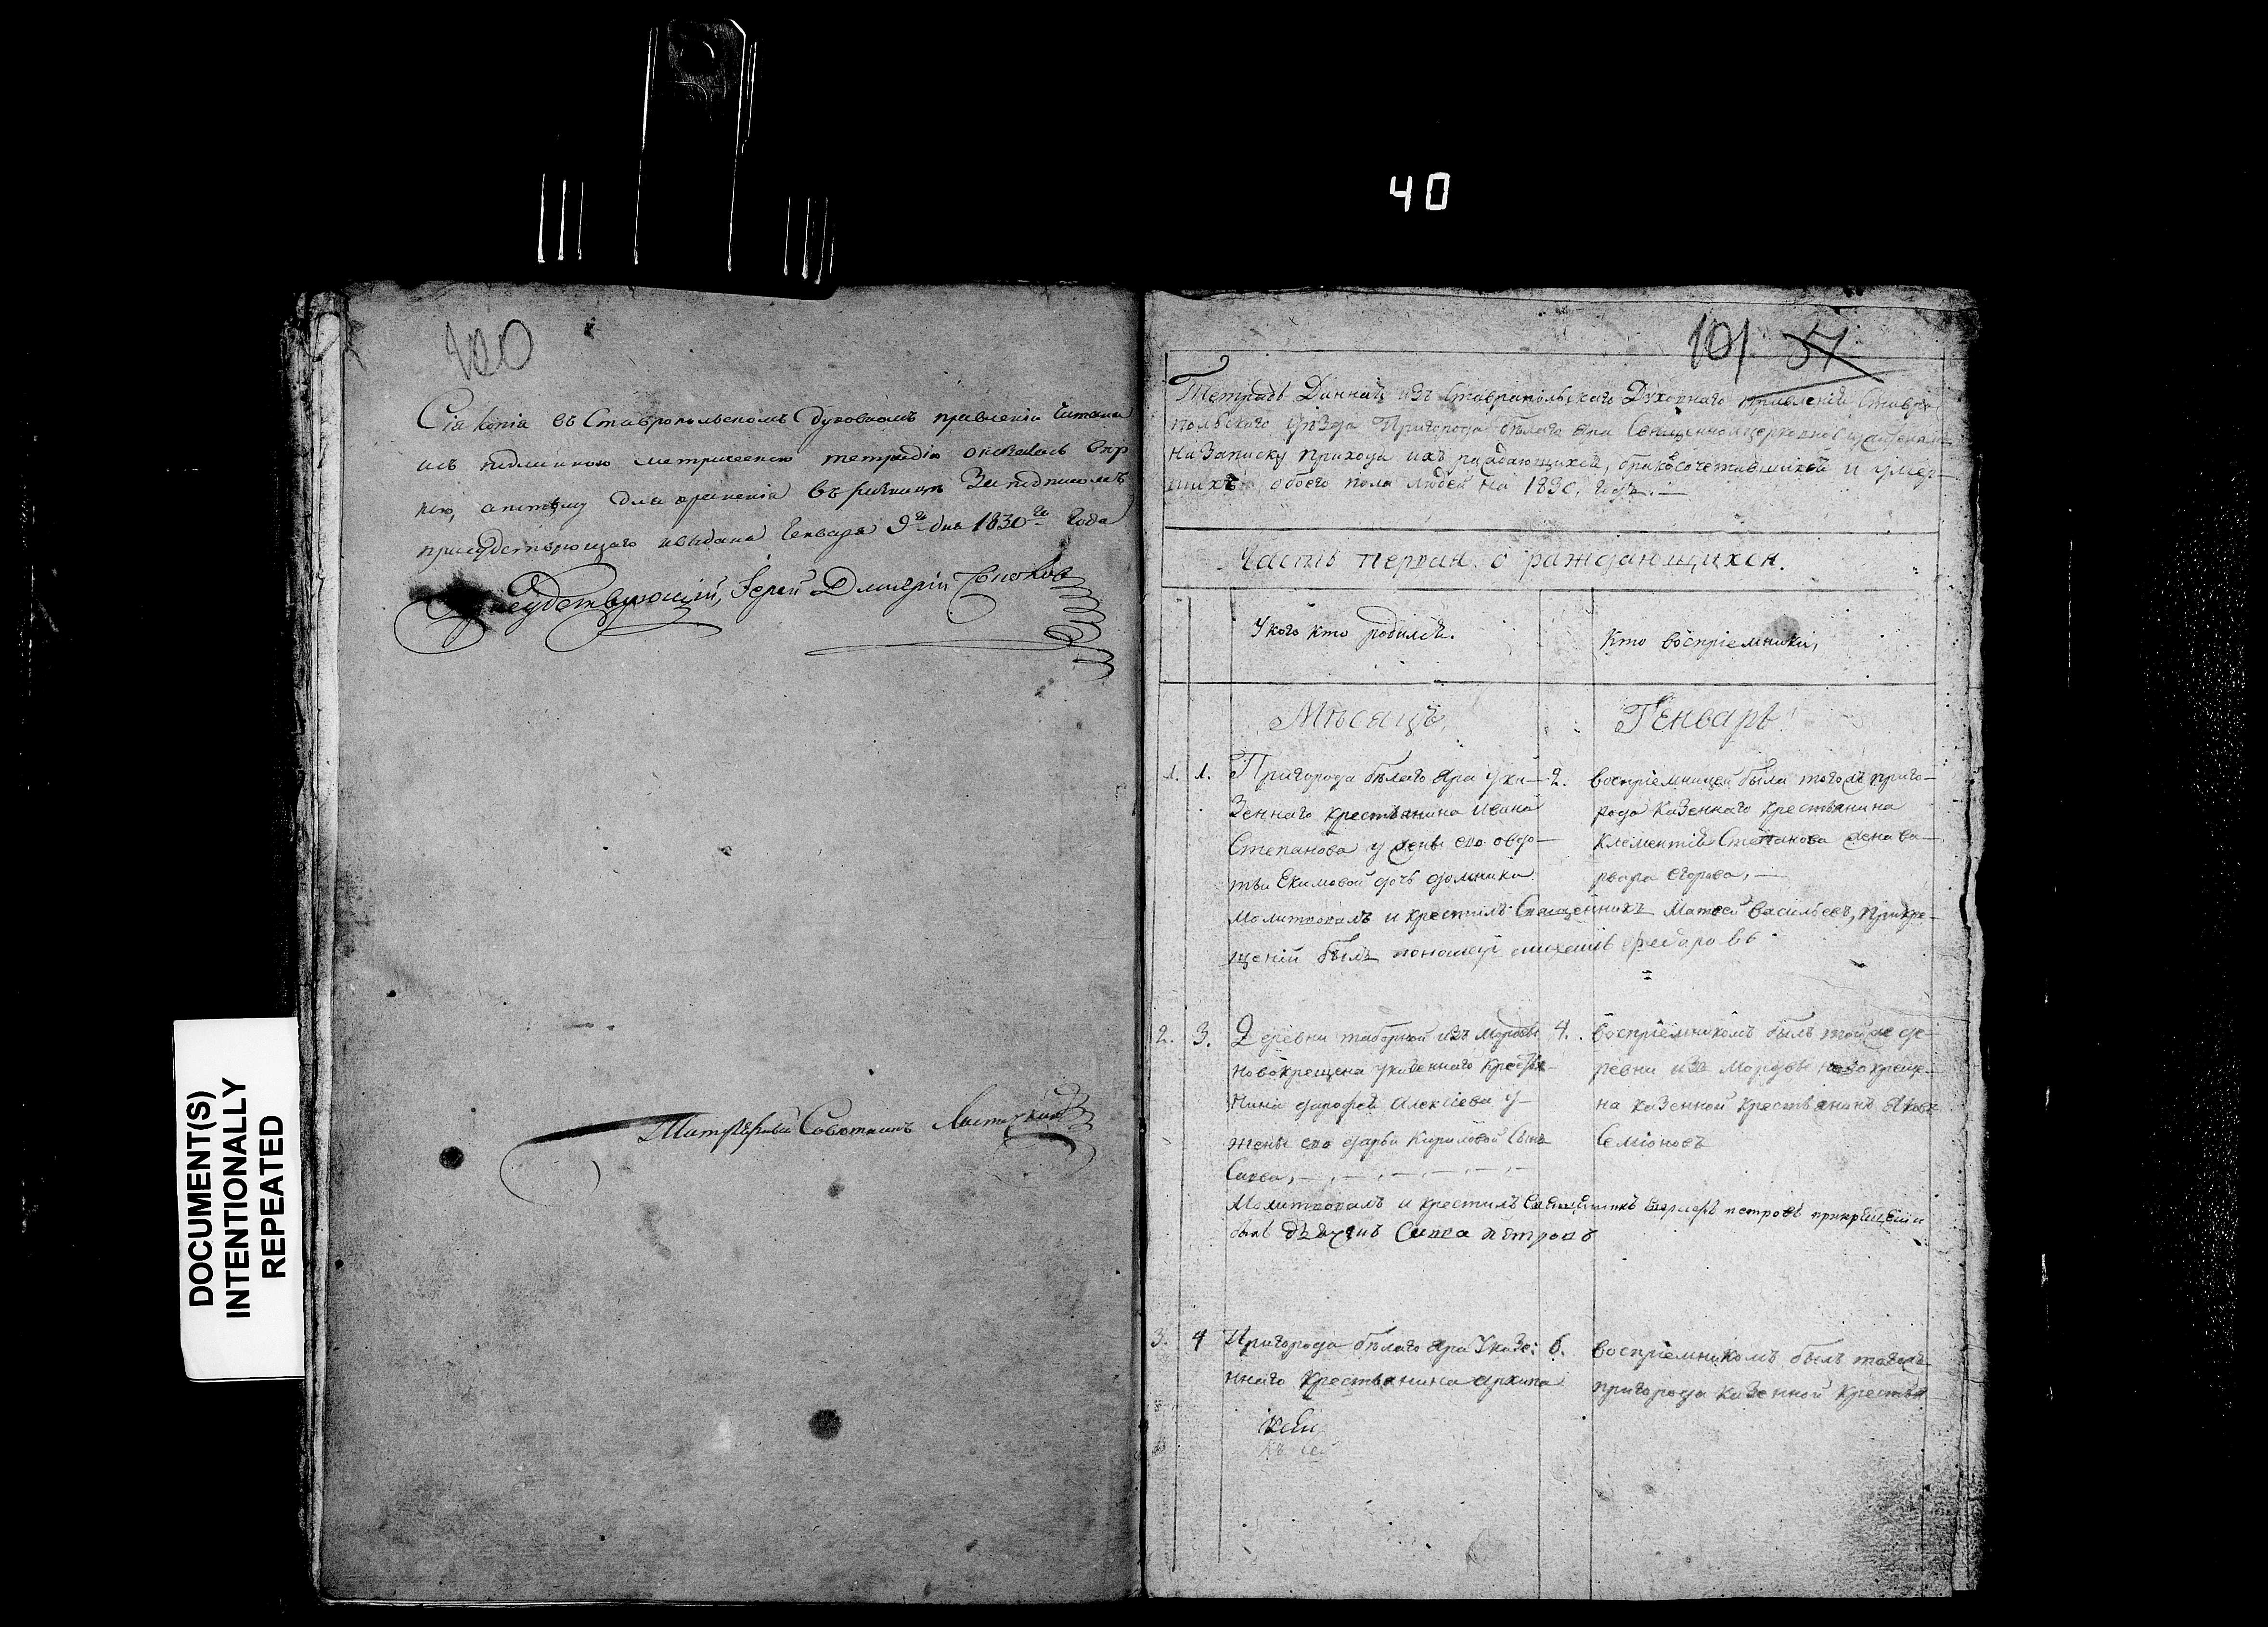 40
100
Сія копія въ Ставропольскомъ Духовномъ правленіи читана
исъ подлинною метрическою тетрадію оказалась вѣр
ною, апотому для храненія въ Заподписомъ
присудствующаго ивыдана Генваря 9го дня 1830го Года
Присудствующій, Іерей Димитрій
Титулярный Совѣтникъ
DOCUMENT(S)
INTENTIONALLY
REPEATED
101 57
Тетрадь Данная изъ Ставропольскаго Духовнаго правленія, Ставро
польскаго уѣзда Пригорода бѣлаго яра
на Записку прихода ихъ раждающихся, бракосочетавшихся и умер
шихъ обоего пола людей на 1830. годъ. —
Часть первая. о раждающихся.
У кого кто родился.
Кто воспріемники,
Мѣсяцъ
Генварь
1. 1. Пригорода бѣлаго яра у ка—
зеннаго крестьянина Ивана
Степанова у жены его овдо—
тьи Екимовой дочь домника
2. воспріемницей была тогожъ приго—
рода казеннаго крестьянина
Клементія Степанова жена ва—
рвара Егорова, —
Молитвовалъ и крестилъ Священникъ Матвей Васильевъ, прикре—
щеніи былъ пономарь федоровъ
2. 3. Деревни таборной изъ мордвы
новокрещена указеннаго крестья—
нина дарофея Алексеева у—
жены его дарьи Кириловой Сынъ
Савва, —, —, —, —, —
4. воспріемникомъ былъ тойже де
ревни изъ Мордвы новокреще—
на казенной крестьянинъ Яковъ
Семіоновъ
Молитвовалъ и крестилъ Священникъ петровъ прикрещеніи
былъ дьячикъ Савва петровъ
3. 4 Пригорода бѣлаго яра У казе:
ннаго Крестьянина архипа
6. воспріемникомъ былъ тогожъ
пригорода казенной крестья